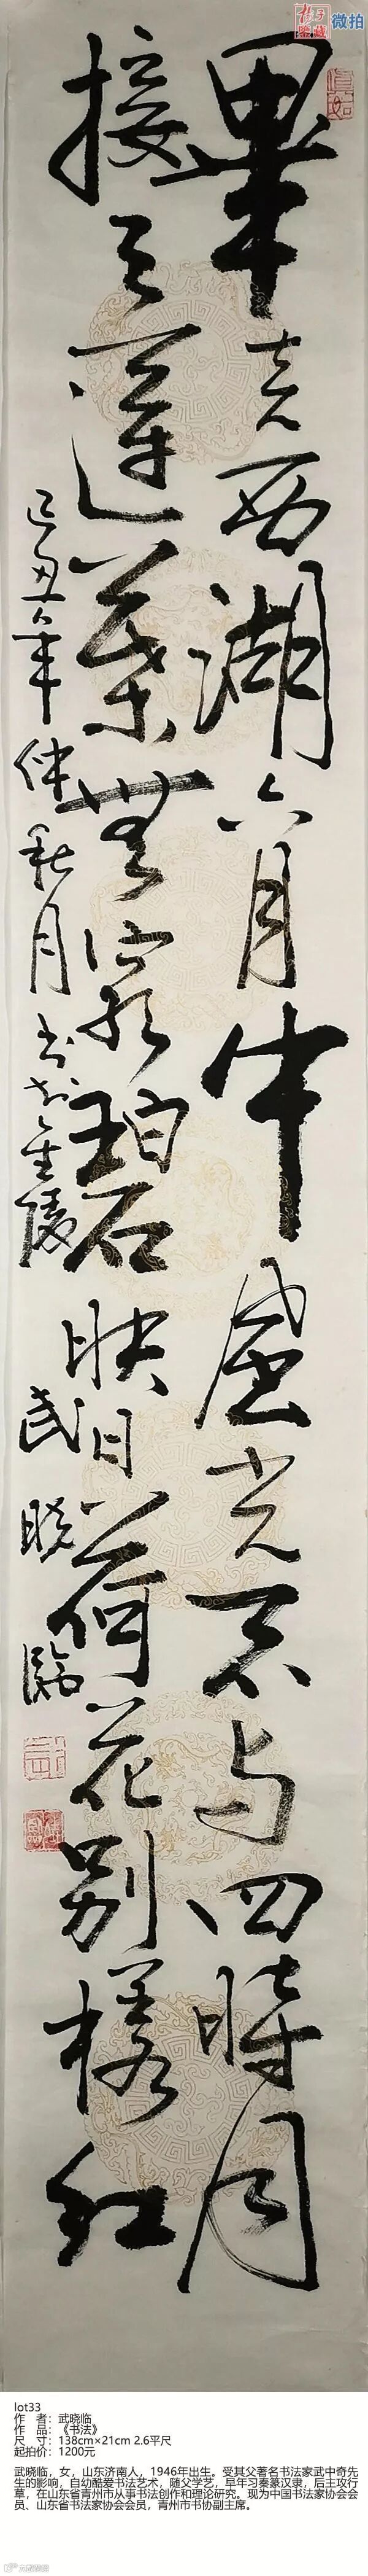 微拍
真如
畢竟西湖六月中盛光不与四時同
接天蓮葉無窮碧映日荷花别樣红
己丑年仲秋月书於金陵
武晓临
lot33
作　者：武晓临
作　品：《书法》
尺　寸：138cm×21cm 2.6平尺
起拍价：1200元
武晓临，女，山东济南人，1946年出生。受其父著名书法家武中奇先
生的影响，自幼酷爱书法艺术，随父学艺，早年习秦篆汉隶，后主攻行
草，在山东省青州市从事书法创作和理论研究。现为中国书法家协会会
员、山东省书法家协会会员，青州市书协副主席。